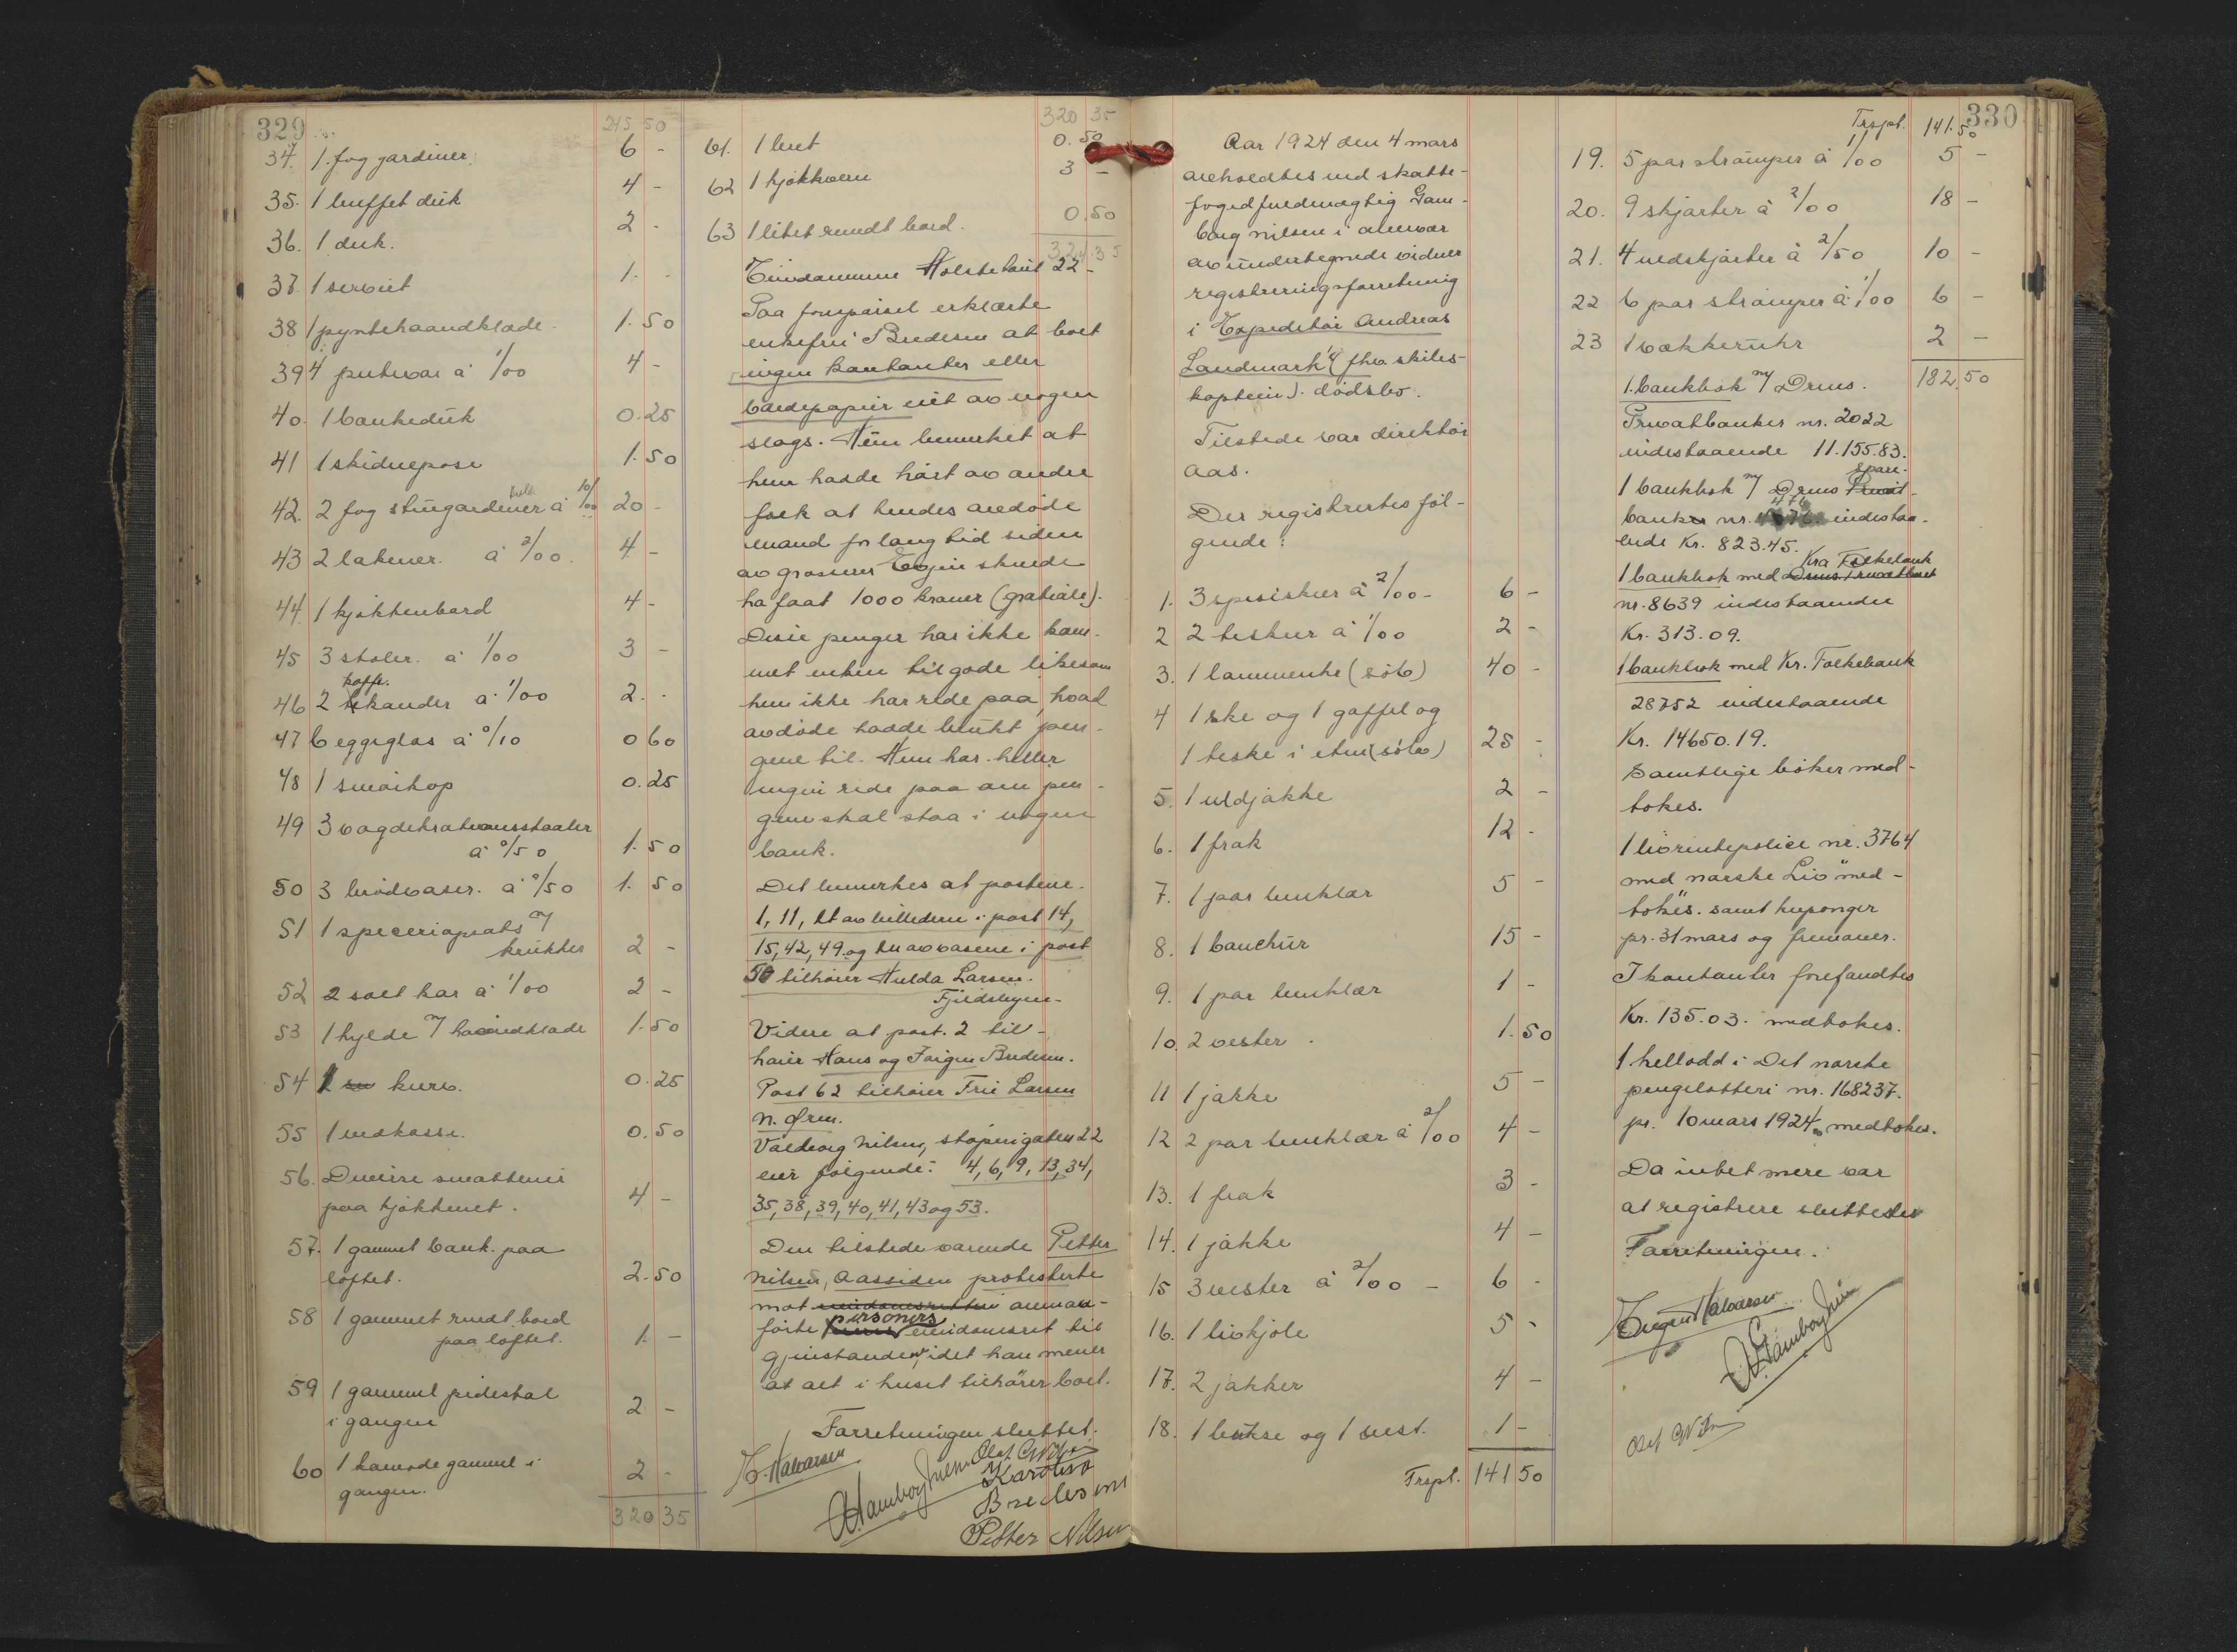 329
245 50
34. 1. fog gardiner. 6 -
35. 1 buffet duk 4 -
36. 1 duk. 2 -
37. 1 serviet 1. -
38 1 pyntehaandklæde. 1. 50
39 4 putevar à 1/00 4 -
40. 1 bankeduk 0.25
41 1 skidnepose 1. 50
42. 2 fog stuegardiner à 10/00 20 -
43 2 lakener. à 2/00. 4 -
44. 1 kjøkkenbord 4 -
45 3 stoler. à 1/00 3 -
kaffe.
46 2 kander à 1/00 2. -
47 6 eggeglas à 0/10 0 60
48 1 smørkop 0.25
49 3 vægdekrationsstaaler
à 0/50 1. 50
50 3 brødvaser. à 0/50 1. 50
51 1 speceriapsats m/
krukker 2 -
52 2 salt kar à 1/00 2 -
53 1 hylde m/ haandklæde 1.50
54 1 kurv. 0.25
55 1 vedkasse. 0.50
56. Diverse smaatterier
paa kjøkkenet. 4 -
57. 1 gammel bænk. paa
loftet. 2.50
58 1 gammelt rundt bord
paa loftet. 1. -
59 1 gammel pidestal
i gangen 2 -
60 1 komode gammel i
gangen. 2 -
320 35
320 35
61. 1 bret 0.50
62 1 kjøkkvern 3 -
63 1 litet rundt bord. 0.50
324.35
Eiendommen Holstebant 22 -
Paa forespørsel erklærte
enkefru Bredesen at boet
ingen kontanter eller
værdipapir eiet av nogen
slags. Hun bemerket at
hun hadde hørt av andre
folk at hendes avdøde
mand for lang tid siden
av grosserer skulde
ha faat 1000 kroner (gratiale).
Disse penger har ikke kom-
met enken tilgode likesom
hun ikke har rede paa, hvad
avdøde hadde brukt pen-
gene til. Hun har heller
ingen rede paa om pen-
gene skal staa i nogen
bank.
Det bemerkes at postene.
1, 11, et av billederne i post 14,
15, 42, 49. og en av vasene i post
50 tilhører Hulda Larsen.
Fjeldsbyen.
Videre at post. 2 til-
hører Hans og Jørgen Bredesen.
Post 62 tilhører Fru Larsen
n. Ørm.
Valborg Nilsen, støperigaten 22
eier følgende: 4, 6, 9, 13, 34,
35, 38, 39, 40, 41, 43 og 53.
Den tilstedeværende Petter
Nilsen, Aassiden protesterte
mot eiendomsretten anmaa-
førte personers eiendomsret til
gjenstanden, idet han mener
at alt i huset tilhører boet.
Forretningen sluttet.
E. Halvorsen
Karoline
Bredesen
Petter Nilsen
330
Aar 1924 den 4 mars
avholdtes ved skatte-
fogedfuldmægtig Gam-
borg Nilsen i nærvær
av undertegnede vidner
registreringsforretning
i Expeditør Andreas
Landmark's (fhv. skibs-
kaptein). dødsbo.
Tilstede var direktør
Aas.
Der registrertes føl-
gende:
1. 3 spiseskeer à 2/00 - 6 -
2 2 teskeer à 1/00 2 -
3. 1 lommeuhr (sølv) 40 -
4 1 ske og 1 gaffel og
1 teske i etui (sølv) 25 -
5. 1 uldjakke 2 -
6. 1 frak 12 -
7. 1 par benklær 5 -
8. 1 bauchur 15 -
9. 1 par benklær 1 -
10. 2 vester. 1. 50
11 1 jakke 5 -
12 2 par benklær à 2/00 4 -
13. 1 frak 3 -
14. 1 jakke 4 -
15 3 vester à 2/00 - 6 -
16. 1 livkjole 5 -
17. 2 jakker 4 -
18. 1 bukse og 1 vest. 1 -
Trspt. 141 50
Trspt. 141.50
19. 5 par strømper à 1/00 5 -
20. 9 skjorter à 2/00 18 -
21. 4 uldskjorter à 2/50 10 -
22 6 par strømper à 1/00 6 -
23 1 vækkeruhr 2 -
182.50
1. bankbok m/ Drms.
Privatbanker nr. 2022
indestaaende 11.155.83.
1 bankbok m/ Drms Spare-
bank nr. 476 indestaa-
ende Kr. 823.45.
Kra Folkebank
1 bankbok med Drms. Privatbank
nr. 8639 indestaaende
Kr. 313.09.
1 bankbok med Kr. Folkebank
28752 indestaaende
Kr. 14650.19.
Samtlige bøker med-
tokes.
1 livrentepolice nr. 3764
med norske Liv med-
tokes. samt kuponger
pr. 31 mars og fremover.
I kontanter forefandtes
Kr. 135.03. medtokes.
1 hellodd i Det norske
pengelotteri nr. 168237.
pr. 10 mars 1924 medtokes.
Da intet mere var
at registrere sluttedes
Forretningen.
Eugen Halvorsen